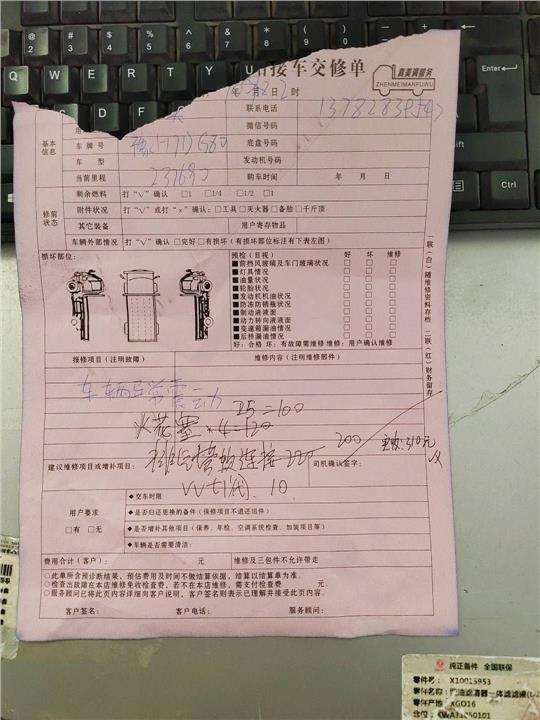 接车交修单
真美满服务
ZHENMEIMANFUWU
年 月 日 时
联系电话
微信号码
基本信息
车牌号
底盘号码
车型
发动机号码
当前里程 237690
购车时间 年 月 日
修前状态
剩余燃料 打"√"确认 □1 □1/4 □1/2 □1
附件状况 打"√"或打"×"确认：□工具 □灭火器 □备胎 □千斤顶
其它装备 用户寄存物品
车辆外部情况 打"√"确认 □完好 □有损坏（有损坏部位标注有下表左图）
损坏部位：
预检（目视） 好 坏 维修
■前挡风玻璃及车门玻璃状况 □ □ □
■灯具情况 □ □ □
■油量状况 □ □ □
■轮胎状况 □ □ □
■发动机机油状况 □ □ □
■防冻防锈瓶状况 □ □ □
■制动液液面 □ □ □
■动力转向液液面 □ □ □
■变速箱漏油情况 □ □ □
■后桥漏油情况 □ □ □
好：合格 坏：有故障需维修 维修：用户确认维修
一联（白）随维修资料存档 二联（红）财务留存
报修项目（注明故障） 维修内容（注明维修部件）
车辆异常震动
25=100
火花塞×4=120
200
歧管软连接 220
实收：310元
建议维修项目或增补项目： 司机确认签字：
10
用户要求
□有 □无
◆交车时限
◆是否归还更换的备件（保修项目不退还旧件）
◆是否增补其他项目（保养、年检、空调系统检查、加装项目等）
◆车辆是否需要清洁：
费用合计（客户）： 元 维修及三包件不允许带走
○此单所含预诊断结果、预估费用及时间不做结算依据，结算以结算单为准。
○检查出故障在本店维修免收检查费，若不在本店维修，需支付检查费 元。
○服务顾问已将此页内容详细向客户说明，客户签名则表示已理解并接受此页内容。
客户签名： 客户电话： 服务顾问：
纯正备件 全国联保
零件号：X10013953
零件产地 XGO16